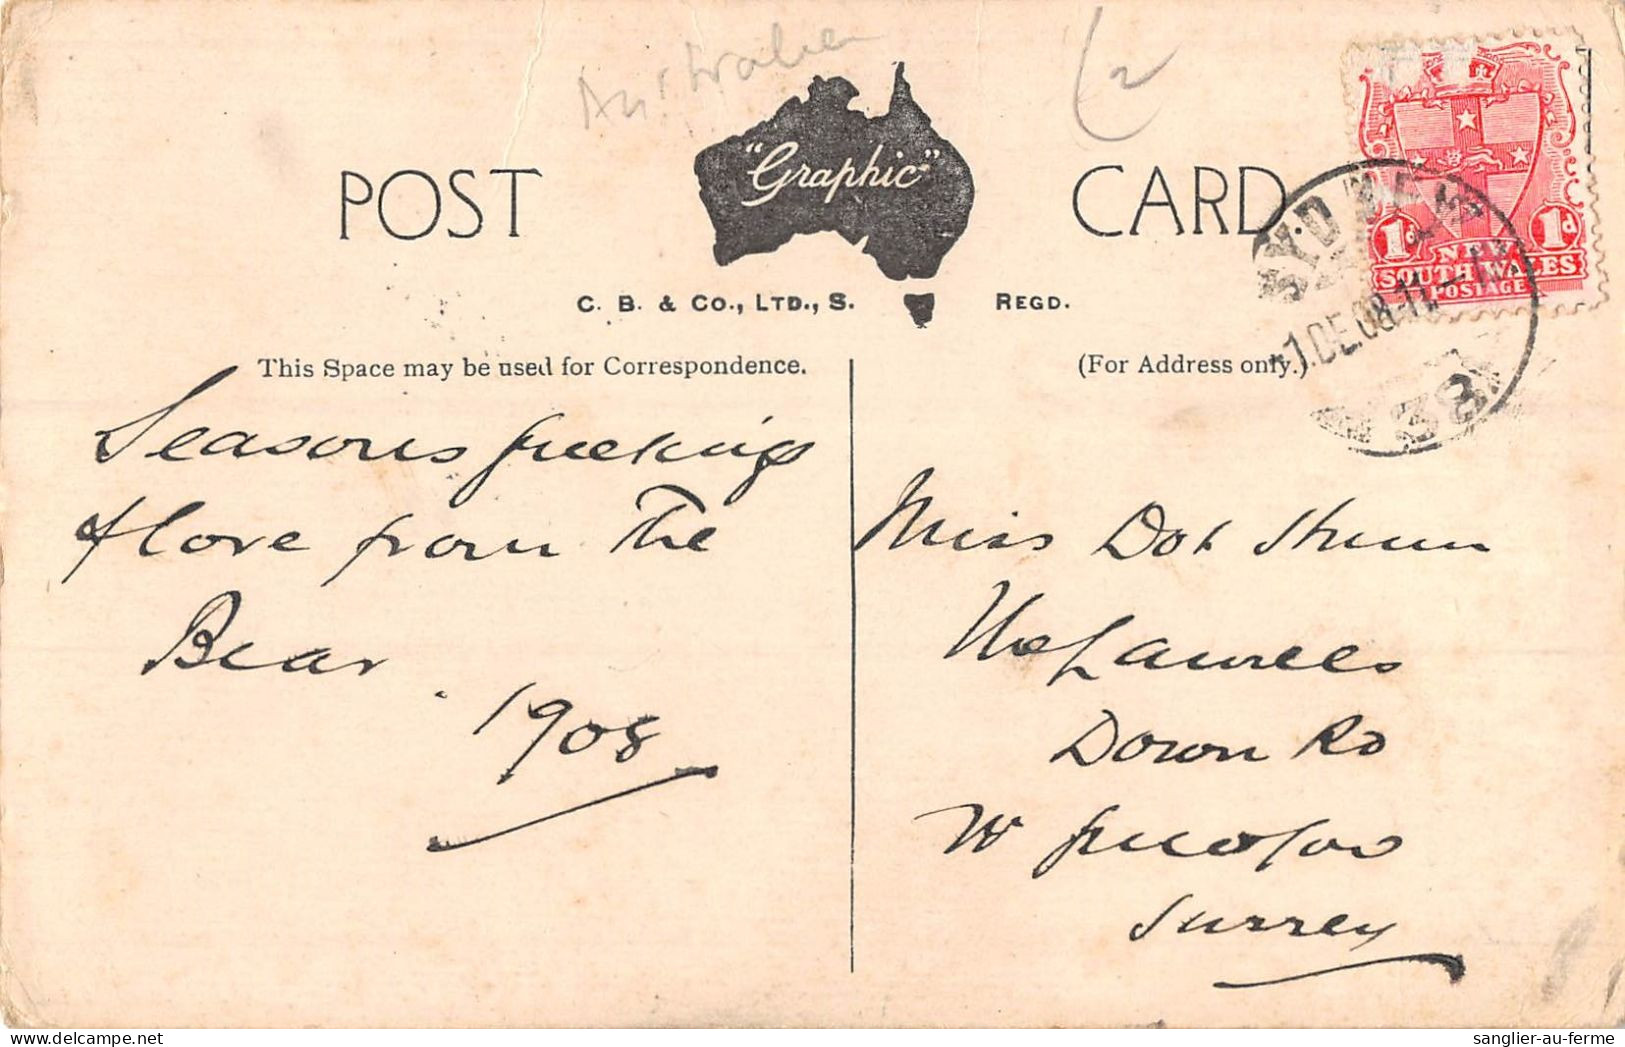 Australien
POST "Graphic" CARD.
C. B. & CO., LTD., S. REGD.
1d 1d
NEW
SOUTH WALES
POSTAGE
SYDNEY
1.DE.08.11
38
This Space may be used for Correspondence.
(For Address only.)
Seasons greetings
& love from the
Bear
1908
Miss Dot
The Laurels
Down Rd
W
Surrey
sanglier-au-ferme